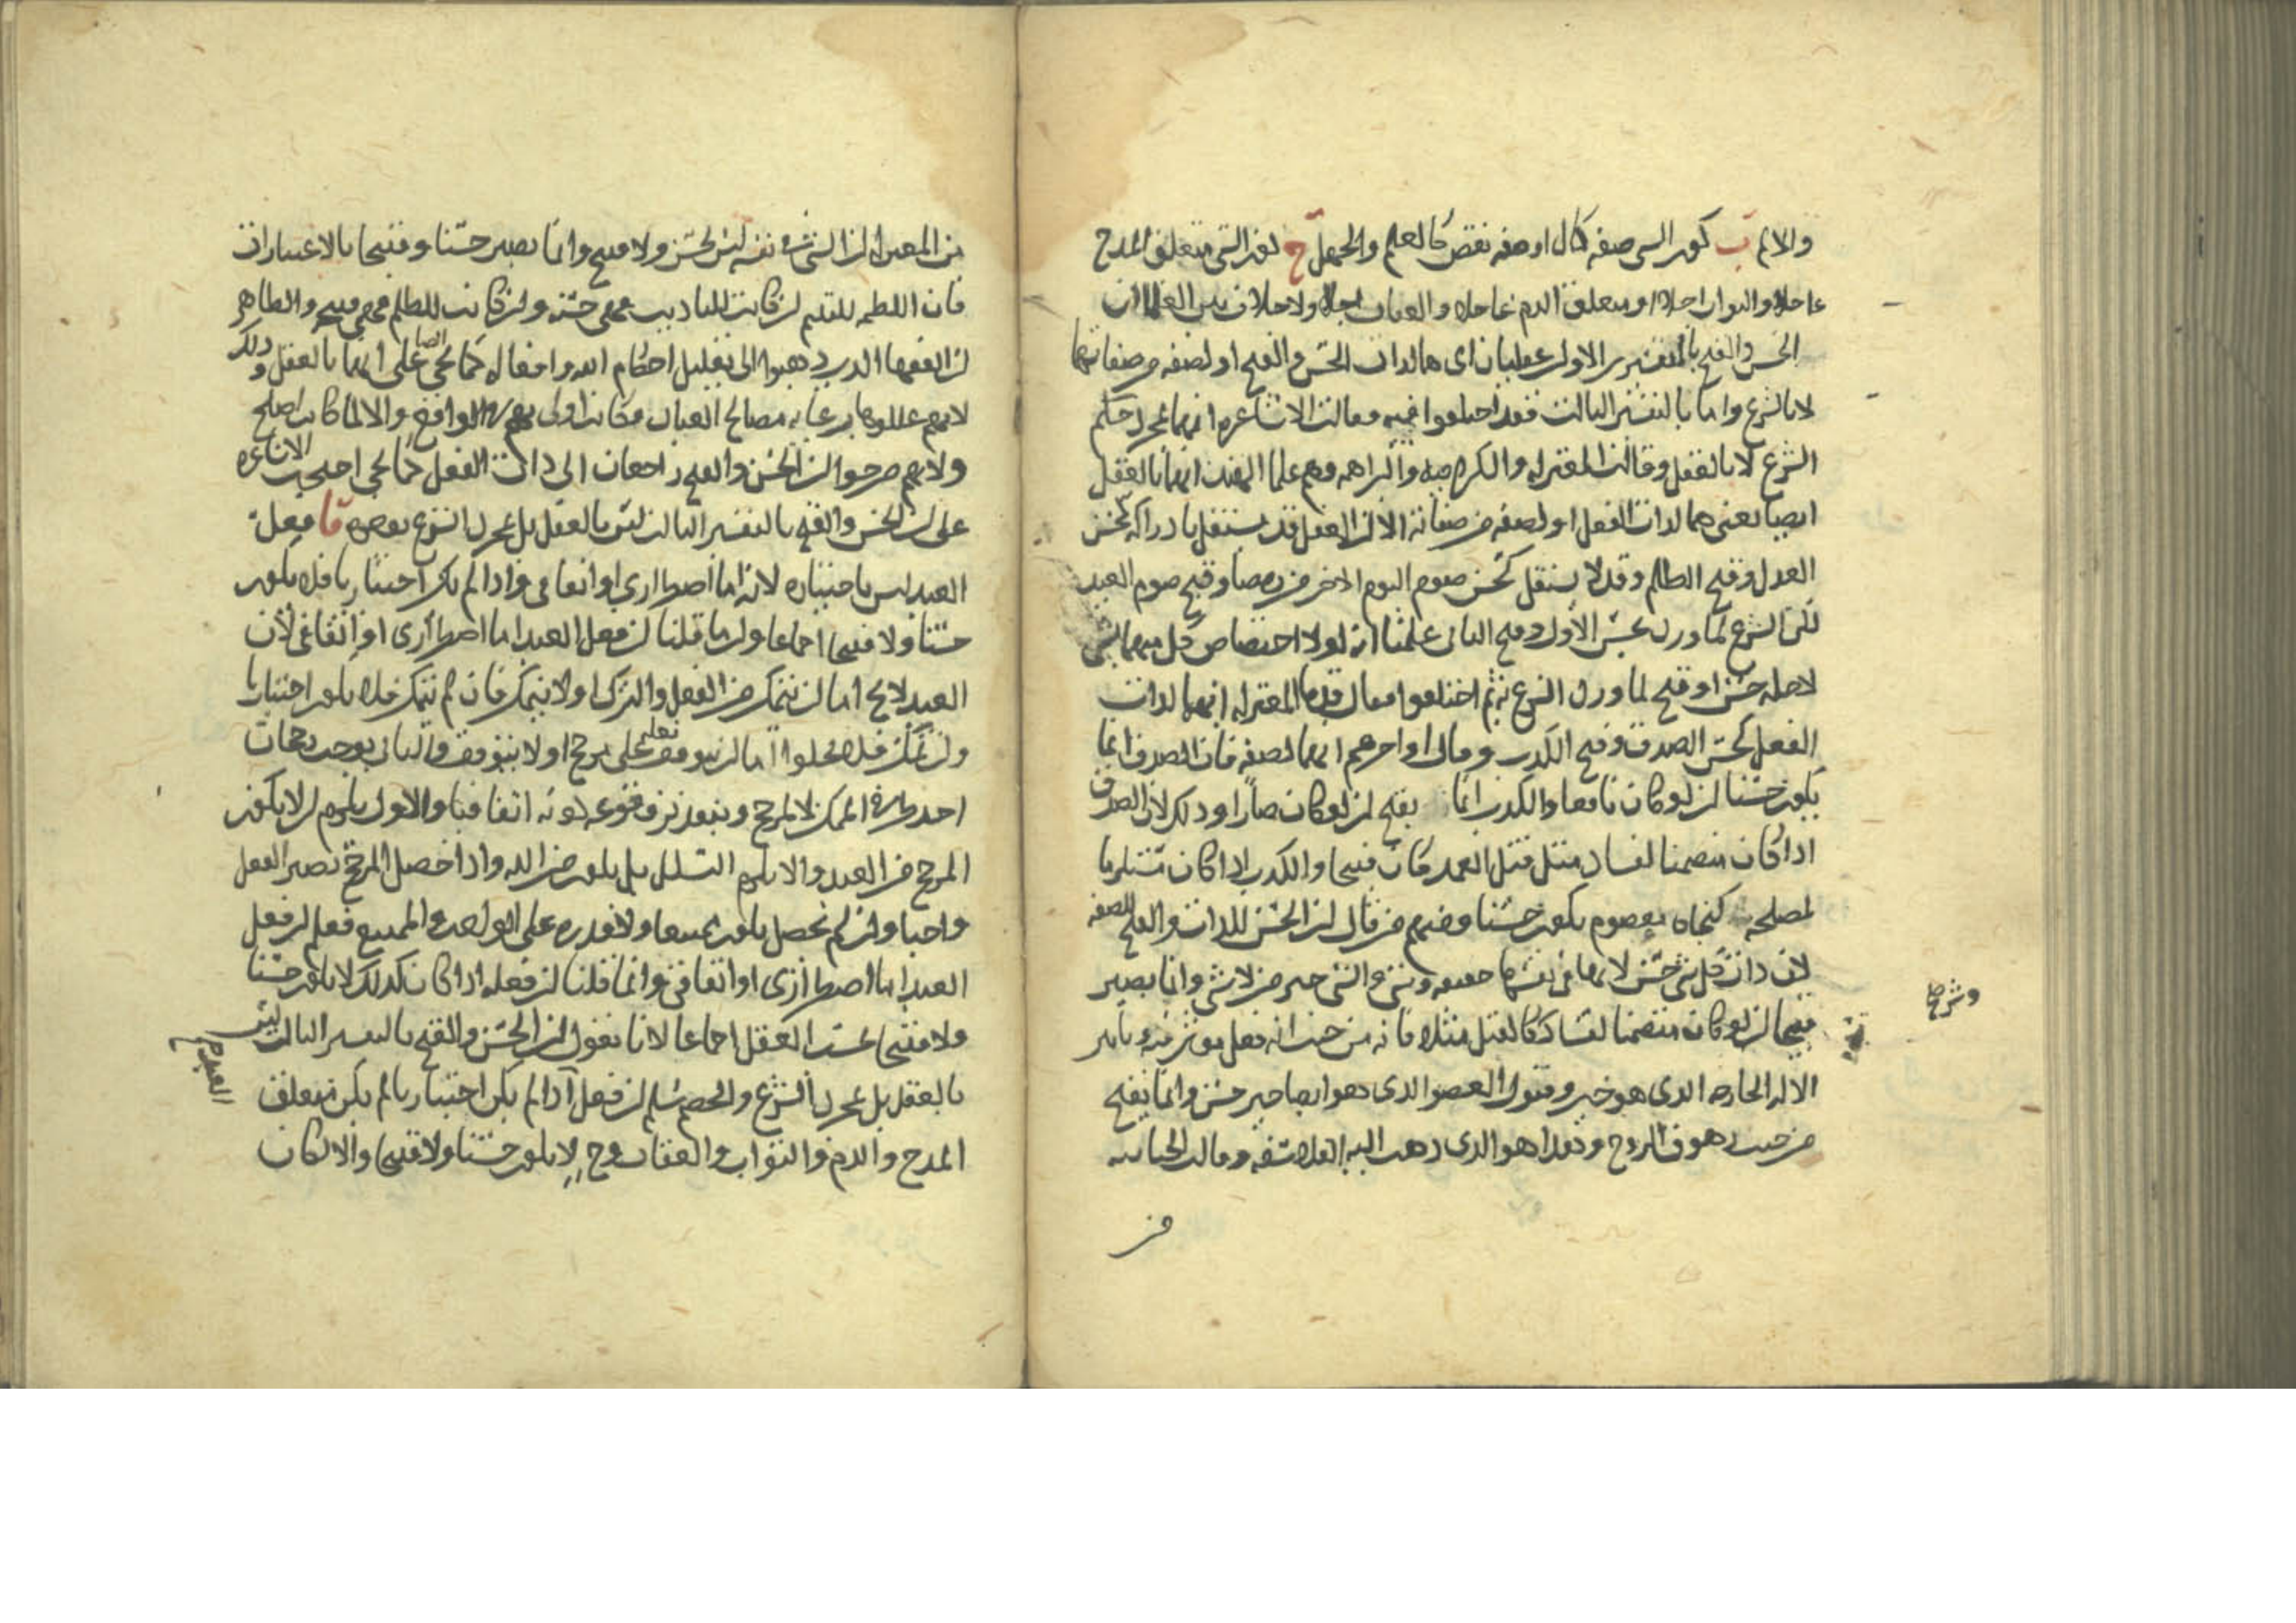 والالم ب كون الشي صفة كمال او صفة نقص كالعلم والجهل ج كون الشي متعلق المدح
عاجلا والثواب اجلا او متعلق الذم عاجلا والعقاب اجلا ولا خلاف بين العلما ان
الحسن والقبح بالتفسيرين الاولين عقليان اى هما لذات الحسن والقبح او لصفة من صفاتهما
لا بالشرع واما بالتفسير الثالث فقد اختلفوا فيه فقالت الاشاعرة انهما بمجرد حكم
الشرع لا بالعقل وقالت المعتزلة والكرامية والبراهمة وهم علما الهند انهما بالعقل
ايضا يعنى هما لذات الفعل او لصفة من صفاته الا ان العقل قد يستقل بادراكه كحسن
العدل وقبح الظلم وقد لا يستقل كحسن صوم اليوم الاخر من رمضان وقبح صوم العيد
لكن الشرع لما ورد بحسن الاول وقبح الثانى علمنا انه لولا اختصاص كل منهما بشى
لاجله حسن او قبح لما ورد الشرع به ثم اختلفوا فقال قدما المعتزلة انهما لذات
الفعل كحسن الصدق وقبح الكذب وقال اواخرهم انهما لصفة فان الصدق انما
يكون حسنا ان لو كان نافعا والكذب انما يقبح ان لو كان ضارا وذلك لان الصدق
اذا كان متضمنا لفساد مثل قتل العمد كان قبيحا والكذب اذا كان مستلزما
لمصلحة كنجاة معصوم يكون حسنا ومنهم من قال ان الحسن للذات والقبح للصفة
لان ذات كل شى حسن لانها فى نفسها حقيقة وشى والشى خير من لا شى وانما يصير
قبيحا ان لو كان متضمنا لفساد كالقتل مثلا فانه من حيث انه فعل موثر فيه وتاثير
الالة الجارحة الذى هو خير وقبول العضو الذى هو ايضا خير حسن وانما يقبح
من حيث زهوق الروح وهذا هو الذى ذهب اليه الفلاسفة وقالت الجبائية
من
وشرح
من المعتزلة ان الشى فى نفسه ليس بحسن ولا قبيح وانما يصير حسنا وقبيحا بالاعتبارات
فان اللطمة لليتيم ان كانت للتاديب فهى حسنة وان كانت للظلم فهى قبيحة والظاهر
ان الفقها الذين ذهبوا الى تعليل احكام الله وافعاله كما يجى ايضا على انهما بالعقل وذلك
لانهم عللوها برعاية مصالح العباد فكانت اولى الواقع والا لما كانت اصلح
ولانهم صرحوا ان الحسن والقبح راجعان الى ذات الفعل كما يجى احتجت الاشاعرة
على ان الحسن والقبح بالتفسير الثالث ليس بالعقل بل بمجرد الشرع بوجوه فا فعل
العبد ليس باختياره لانه اما اضطرارى او اتفاقى واذا لم يكن اختياريا فلا يكون
حسنا ولا قبيحا اجماعا وانما قلنا ان فعل العبد اما اضطرارى او اتفاقى لان
العبد لا يخ اما ان يتمكن من الفعل والترك او لا يتمكن فان لم يتمكن فلا يكون اختياريا
وان تمكن فلا يخلوا اما ان يتوقف فعله على مرجح او لا يتوقف والثانى يوجب رجحان
احد طرفى الممكن لا لمرجح وتجويز وقوعه كونه اتفاقيا والاول يلزم ان لا يكون
المرجح من العبد والا يلزم التسلسل بل يكون من الله واذا حصل المرجح يصير الفعل
واجبا وان لم يحصل يكون ممتنعا ولا قدرة على الواجب والممتنع فعلم ان فعل
العبد اما اضطرارى او اتفاقى وانما قلنا ان فعله اذا كان كذلك لا يكون حسنا
ولا قبيحا بحسب العقل اجماعا لانا نقول ان الحسن والقبح بالتفسير الثالث ليس
بالعقل بل بمجرد الشرع والخصم يسلم ان فعل اذا لم يكن اختياريا لم يكن متعلق
المدح والذم والثواب والعقاب وح لا يكون حسنا ولا قبيحا والا لكان
العبد